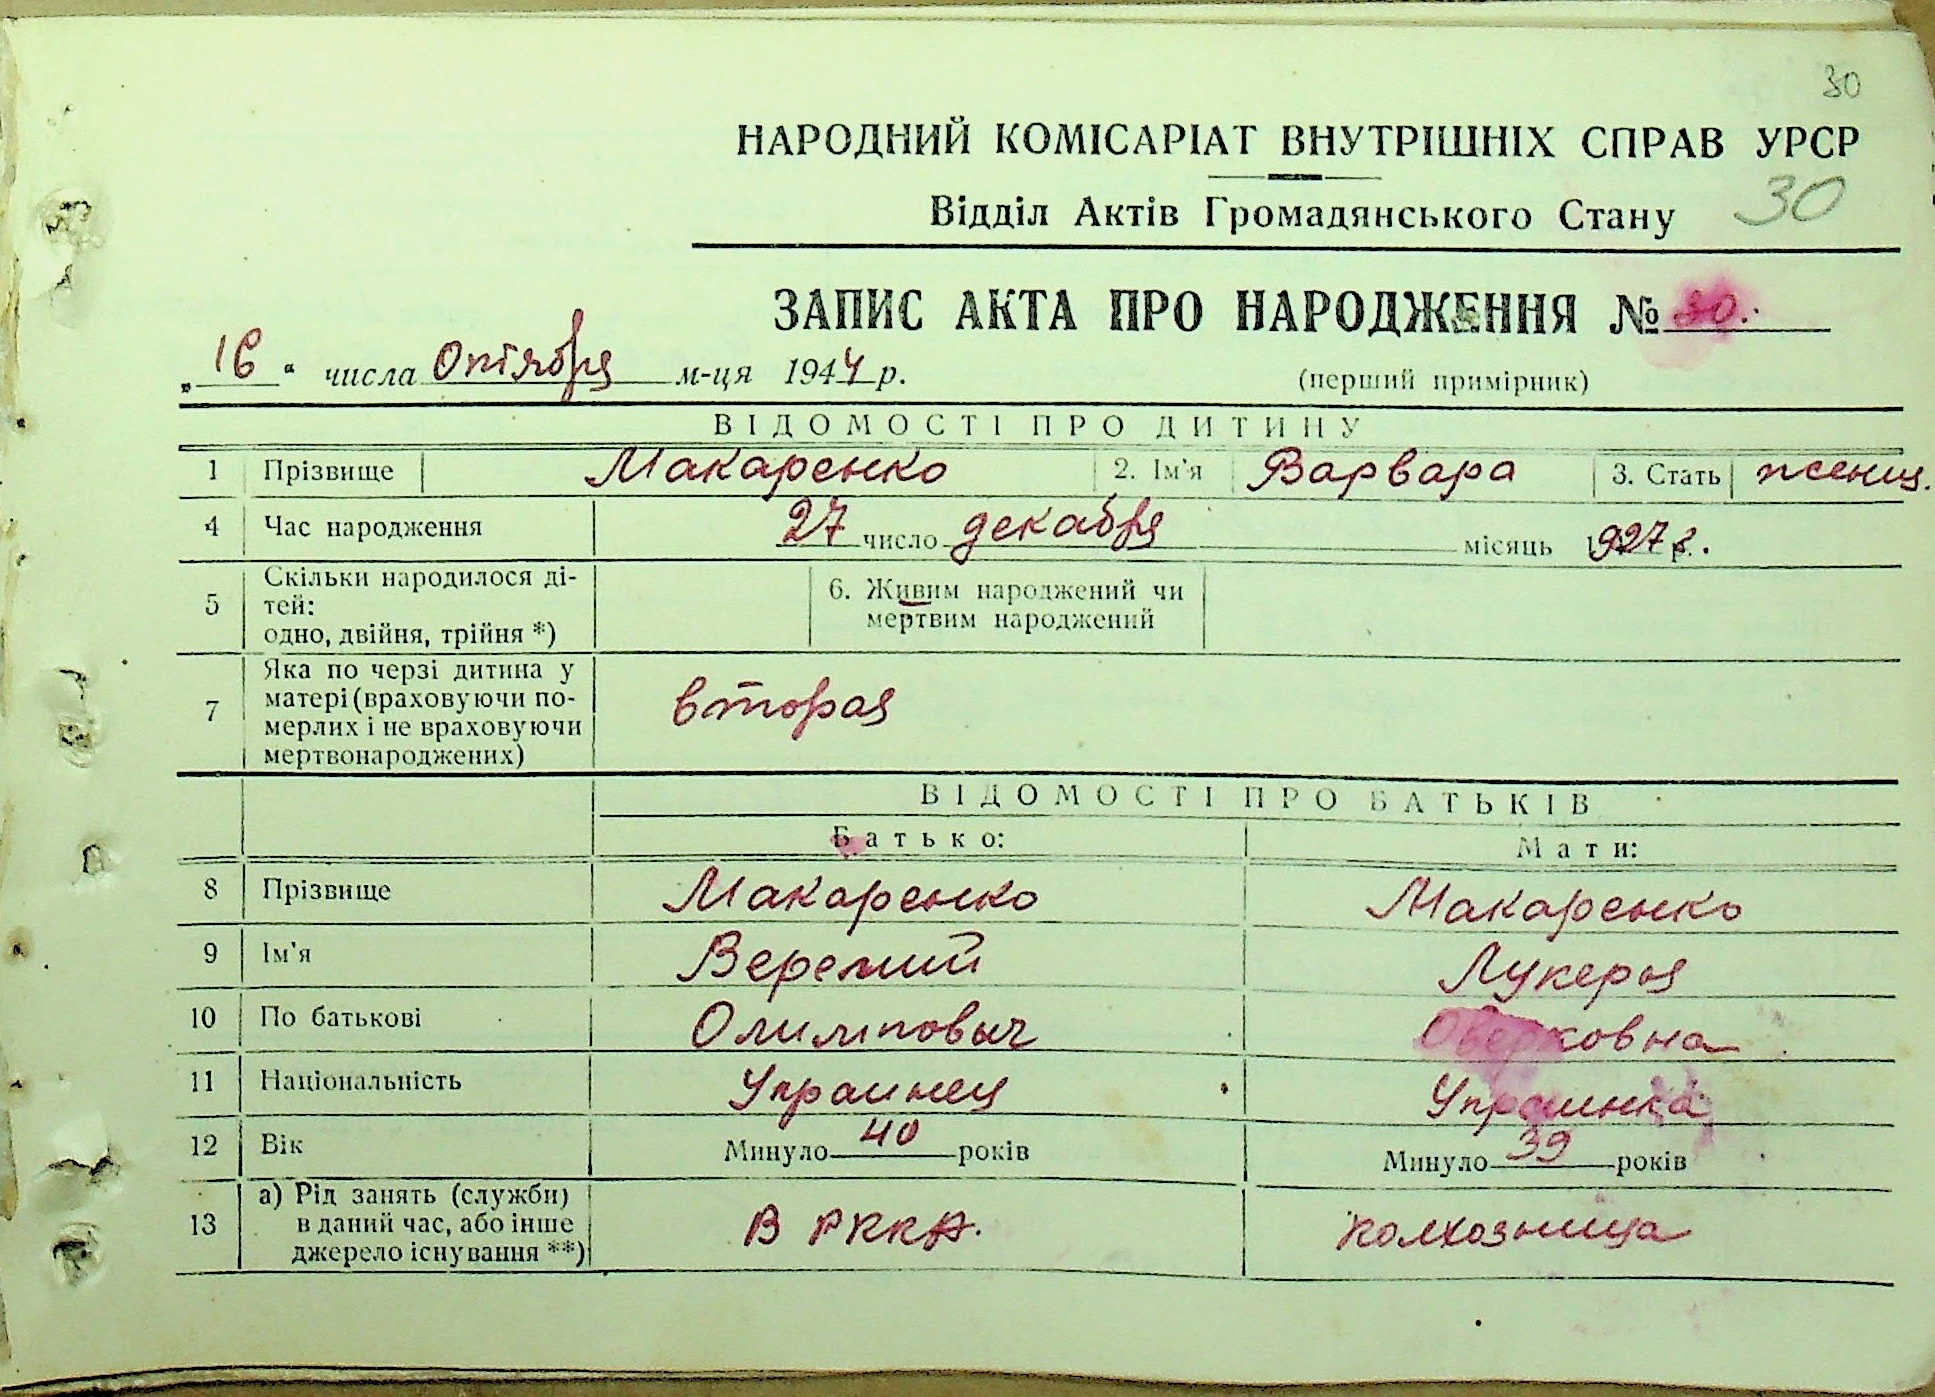 30
НАРОДНИЙ КОМІСАРІАТ ВНУТРІШНІХ СПРАВ УРСР
Відділ Актів Громадянського Стану 30
ЗАПИС АКТА ПРО НАРОДЖЕННЯ № 30.
„16“ числа Октября м-ця 1944 р. (перший примірник)
ВІДОМОСТІ ПРО ДИТИНУ
1 Прізвище Макаренко 2. Ім'я Варвара 3. Стать женщ.
4 Час народження 27 число декабря місяць 1927 г.
5 Скільки народилося ді-
тей:
одно, двійня, трійня *)
6. Живим народжений чи
мертвим народжений
7 Яка по черзі дитина у
матері (враховуючи по-
мерлих і не враховуючи
мертвонароджених)
вторая
ВІДОМОСТІ ПРО БАТЬКІВ
Батько: Мати:
8 Прізвище Макаренко Макаренко
9 Ім'я Веремий Лукерья
10 По батькові Олимпович Оверковна
11 Національність Украинец Украинка
12 Вік Минуло 40 років Минуло 39 років
13 а) Рід занять (служби)
в даний час, або інше
джерело існування **)
В РККА. колхозница